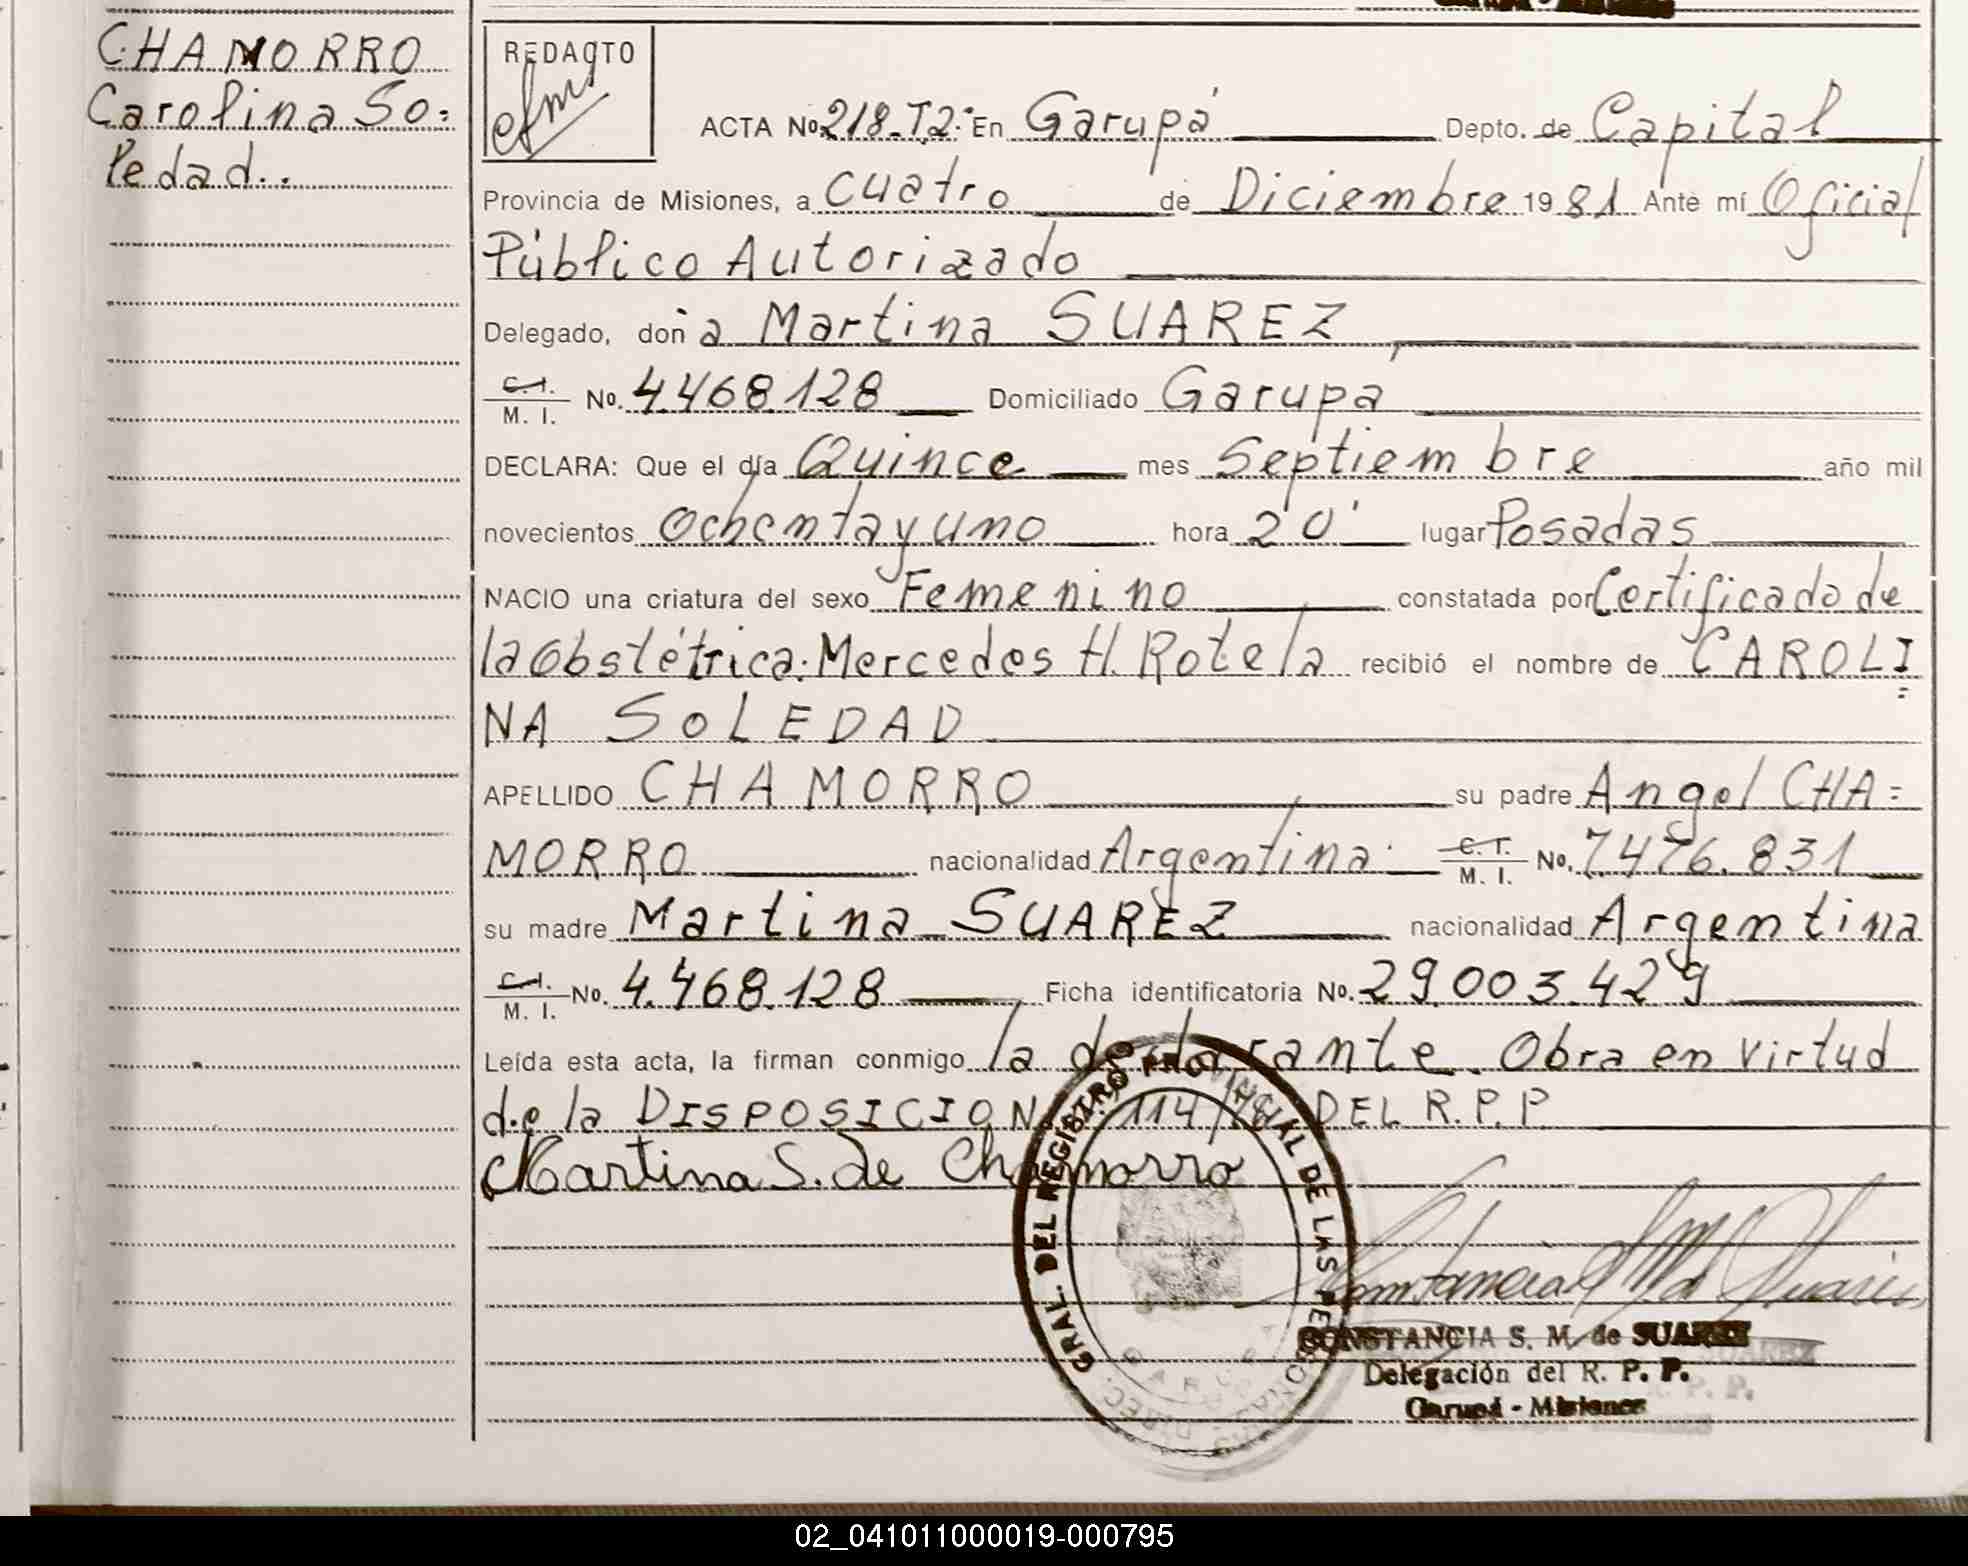 CHAMORRO
Carolina So=
ledad..
REDACTO
ACTA No. 218-T2: En Garupá Depto. de Capital
Provincia de Misiones, a cuatro de Diciembre 1981 Ante mí Oficial
Público Autorizado
Delegado, doña Martina SUAREZ,
C.I. M. I. No. 4.468.128 Domiciliado Garupá
DECLARA: Que el día Quince mes Septiembre año mil
novecientos Ochenta y uno hora 20' lugar Posadas
NACIO una criatura del sexo Femenino constatada por Certificado de
la Obstétrica: Mercedes H. Rotela recibió el nombre de CAROLI=
NA SOLEDAD
APELLIDO CHAMORRO su padre Angel CHA=
MORRO nacionalidad Argentina C. I. M. I. No. 7.476.831
su madre Martina SUAREZ nacionalidad Argentina
C.I. M. I. No. 4.468.128 Ficha identificatoria No. 29.003.429
Leída esta acta, la firman conmigo la declarante. Obra en virtud
de la DISPOSICION 114/ DEL R.P.P.
Martina S. de Chamorro
GRAL. DEL REGISTRO PROVINCIAL DE LAS PERSONAS
CONSTANCIA S. M. de SUAREZ
Delegación del R. P. P.
Garupá - Misiones
02_041011000019-000795